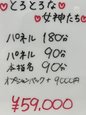 とろとろな
女神たち
パネル 180分
パネル 90分
本指名 90分
オプションパック + 9000円
¥59.000